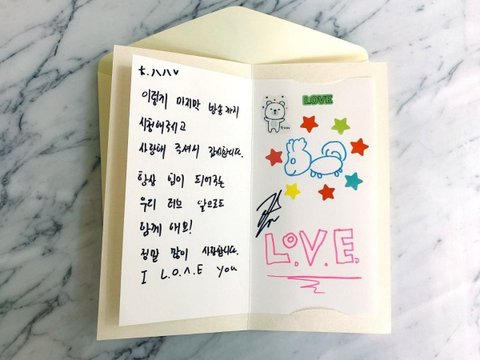 이렇게 마지막 방송까지
시청해주시고
사랑해 주셔서 감사합니다.
항상 힘이 되어주는
우리 러브 앞으로도
함께 해요!
정말 많이 사랑합니다.
I L.O.Λ.E you
LOVE
L.O.V.E.